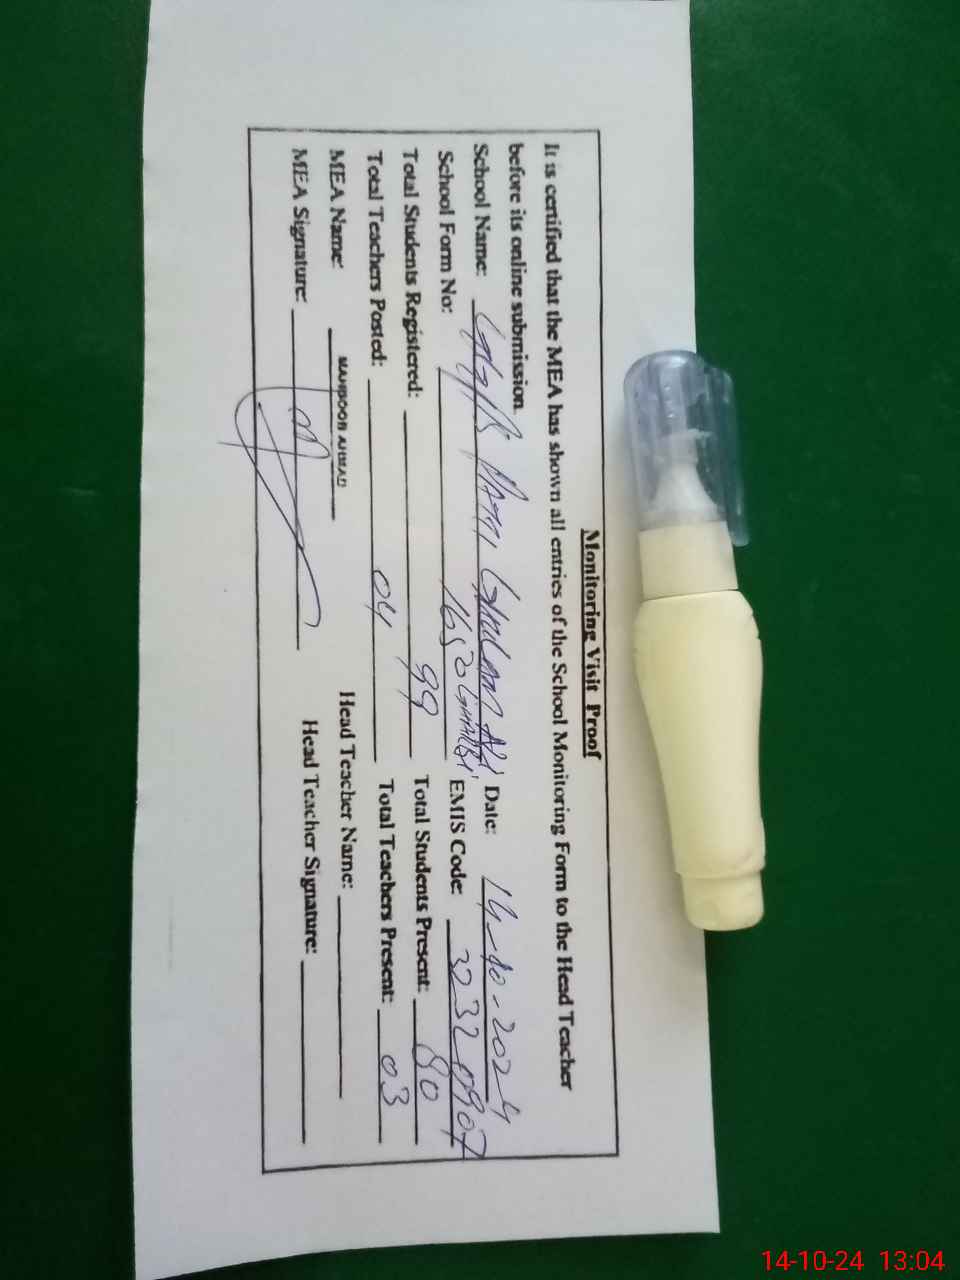 Monitoring Visit Proof
It is certified that the MEA has shown all entries of the School Monitoring Form to the Head Teacher
before its online submission.
School Name: Date: 14-10-2024
School Form No: EMIS Code: 32320907
Total Students Registered: 99 Total Students Present: 80
Total Teachers Posted: 04 Total Teachers Present: 03
MEA Name: MAHBOOB AHMAD Head Teacher Name:
MEA Signature: Head Teacher Signature:
14-10-24 13:04